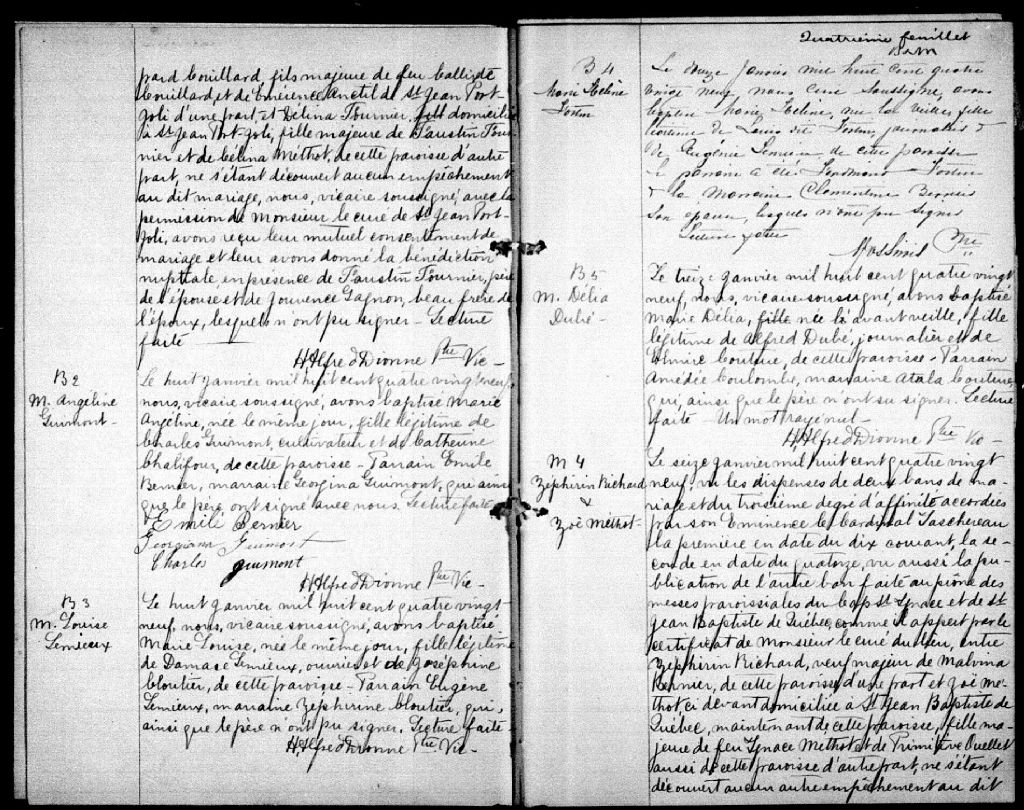 pard Couillard, fils majeure de feu Callixte
Couillard et de Emérence Anctil de St Jean Port
Joli d'une part, et Délina Fournier, fill domiciliée
à St Jean Port-Joli, fille majeure de Faustin Four
nier et de Célina Méthot, de cette paroisse d'autre
part, ne s'étant découvert aucun empêchement
au dit mariage, nous, vicaire soussigné, avec la
permission de Monsieur le curé de St Jean Port-
Joli, avons reçu leur mutuel consentement de
mariage et leur avons donné la bénédiction
nuptiale, en présence de Faustin Fournier, père
de l'épouse et de Jouvence Gagnon, beau frère de
l'époux, lesquels n'ont pu signer - Lecture
faite
H. Alfred Dionne Ptre Vic-
B 2
M. Angéline
Guimont-
Le huit janvier mil huit cent quatre vingt neuf,
nous, vicaire soussigné, avons baptisé Marie
Angéline, née le même jour, fille légitime de
Charles Guimont, cultivateur et de Catherine
Chalifour, de cette paroisse - Parrain Emile
Bernier, marraine Georgina Guimont, qui ainsi
que le père ont signé avec nous. Lecture faite
Emile Bernier
Georgiana Guimont
Charles guimont
H. Alfred Dionne Ptre Vic-
B 3
M. Louise
Lemieux
Le huit janvier mil huit cent quatre vingt-
neuf, nous, vicaire soussigné, avons baptisé
Marie Louise, née le même jour, fille légitime
de Damase Lemieux, ouvrier et de Joséphine
Cloutier, de cette paroisse - Parrain Eugène
Lemieux, marraine Zéphirine Cloutier, qui,
ainsi que le père n'ont pu signer. Lecture faite-
H. Alfred Dionne Ptre Vic-
Quatrième feuillet
B 4
Marie Céline
Fortin
Le douze Janvier mil huit cent quatre
vingt neuf nous curé soussigné avons
baptisé Marie Céline, née la veille, fille
légitime de Louis Fortin, journalier &
de Eugénie Lemieux de cette paroisse
le parrain a été Ferdinand Fortin
& la Marraine Clementine Bernier
son épouse, lesquels n'ont pu signer
Lecture faite
Ptre
B 5
M. Délia
Dubé-
Le treize janvier mil huit cent quatre vingt
neuf, nous, vicaire soussigné, avons baptisé
Marie Délia, fille née l'avant veille, fille
légitime de Alfred Dubé, journalier et de
Elmire Couture, de cette paroisse - Parrain
Amédée Coulombe, marraine Atala Couture,
qui, ainsi que le père n'ont su signer. Lecture
faite - Un mot rayé nul -
H. Alfred Dionne Ptre Vic -
M 4
Zéphirin Richard
&
Zoé Méthot-
Le seize janvier mil huit cent quatre vingt
neuf, vu les dispenses de deux bans de ma-
riage et du troisième degré d'affinité accordées
par son Eminence le Cardinal Taschereau
la première en date du dix courant, la se-
conde en date du quatorze, vu aussi la pu-
blication de l'autre ban faite au prône des
messes paroissiales du Cap St Ignace et de St
Jean Baptiste de Québec, comme il appert par le
certificat de Monsieur le curé du lieu, entre
Zéphirin Richard, veuf majeur de Malvina
Bernier, de cette paroisse d'une part et Zoé Mé-
thot ci devant domiciliée à St Jean Baptiste de
Québec, maintenant de cette paroisse, fille ma-
jeure de feu Ignace Méthot et de Primitive Ouellet
aussi de cette paroisse d'autre part, ne s'étant
découvert aucun autre empêchement au dit